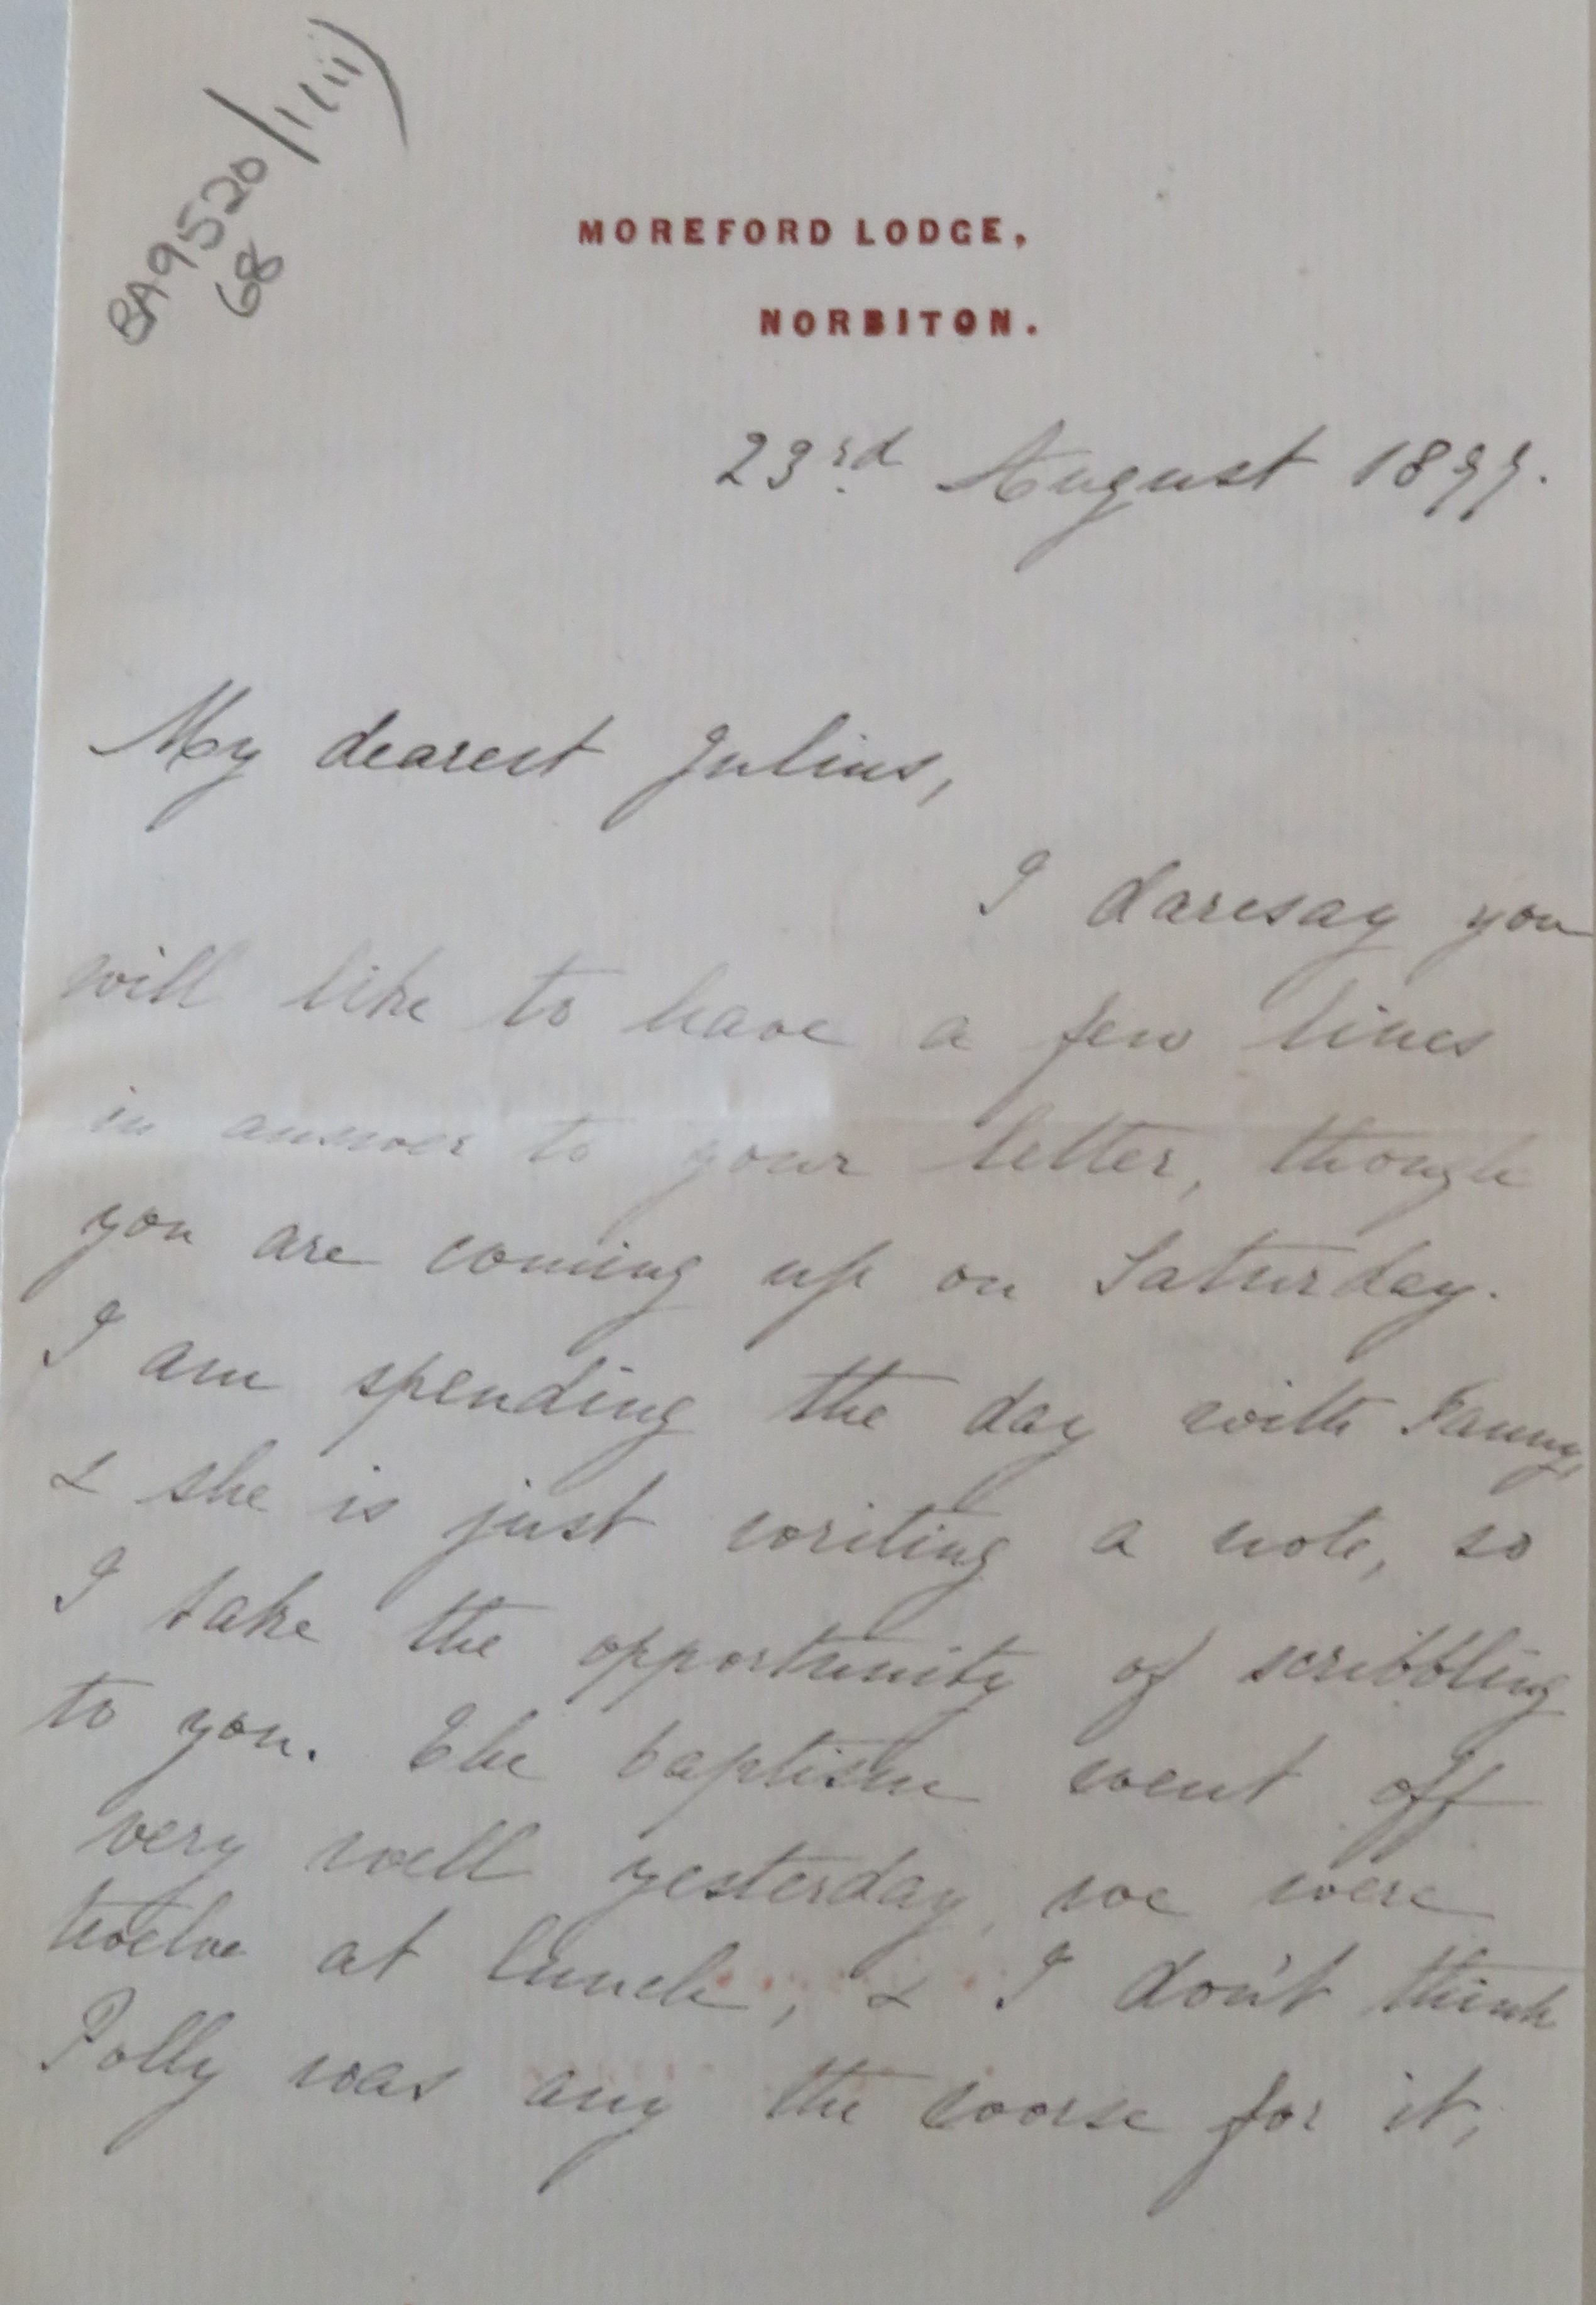 BA9520/1(ii)
68
MOREFORD LODGE,
NORBITON.
23rd August 1899.
My dearest Julius,
I daresay you
will like to have a few lines
in answer to your letter, though
you are coming up on Saturday.
I am spending the day with Fanny,
& she is just writing a note, so
I take the opportunity of scribbling
to you. The baptism went off
very well yesterday, we were
twelve at lunch, & I don't think
Polly was any the worse for it,